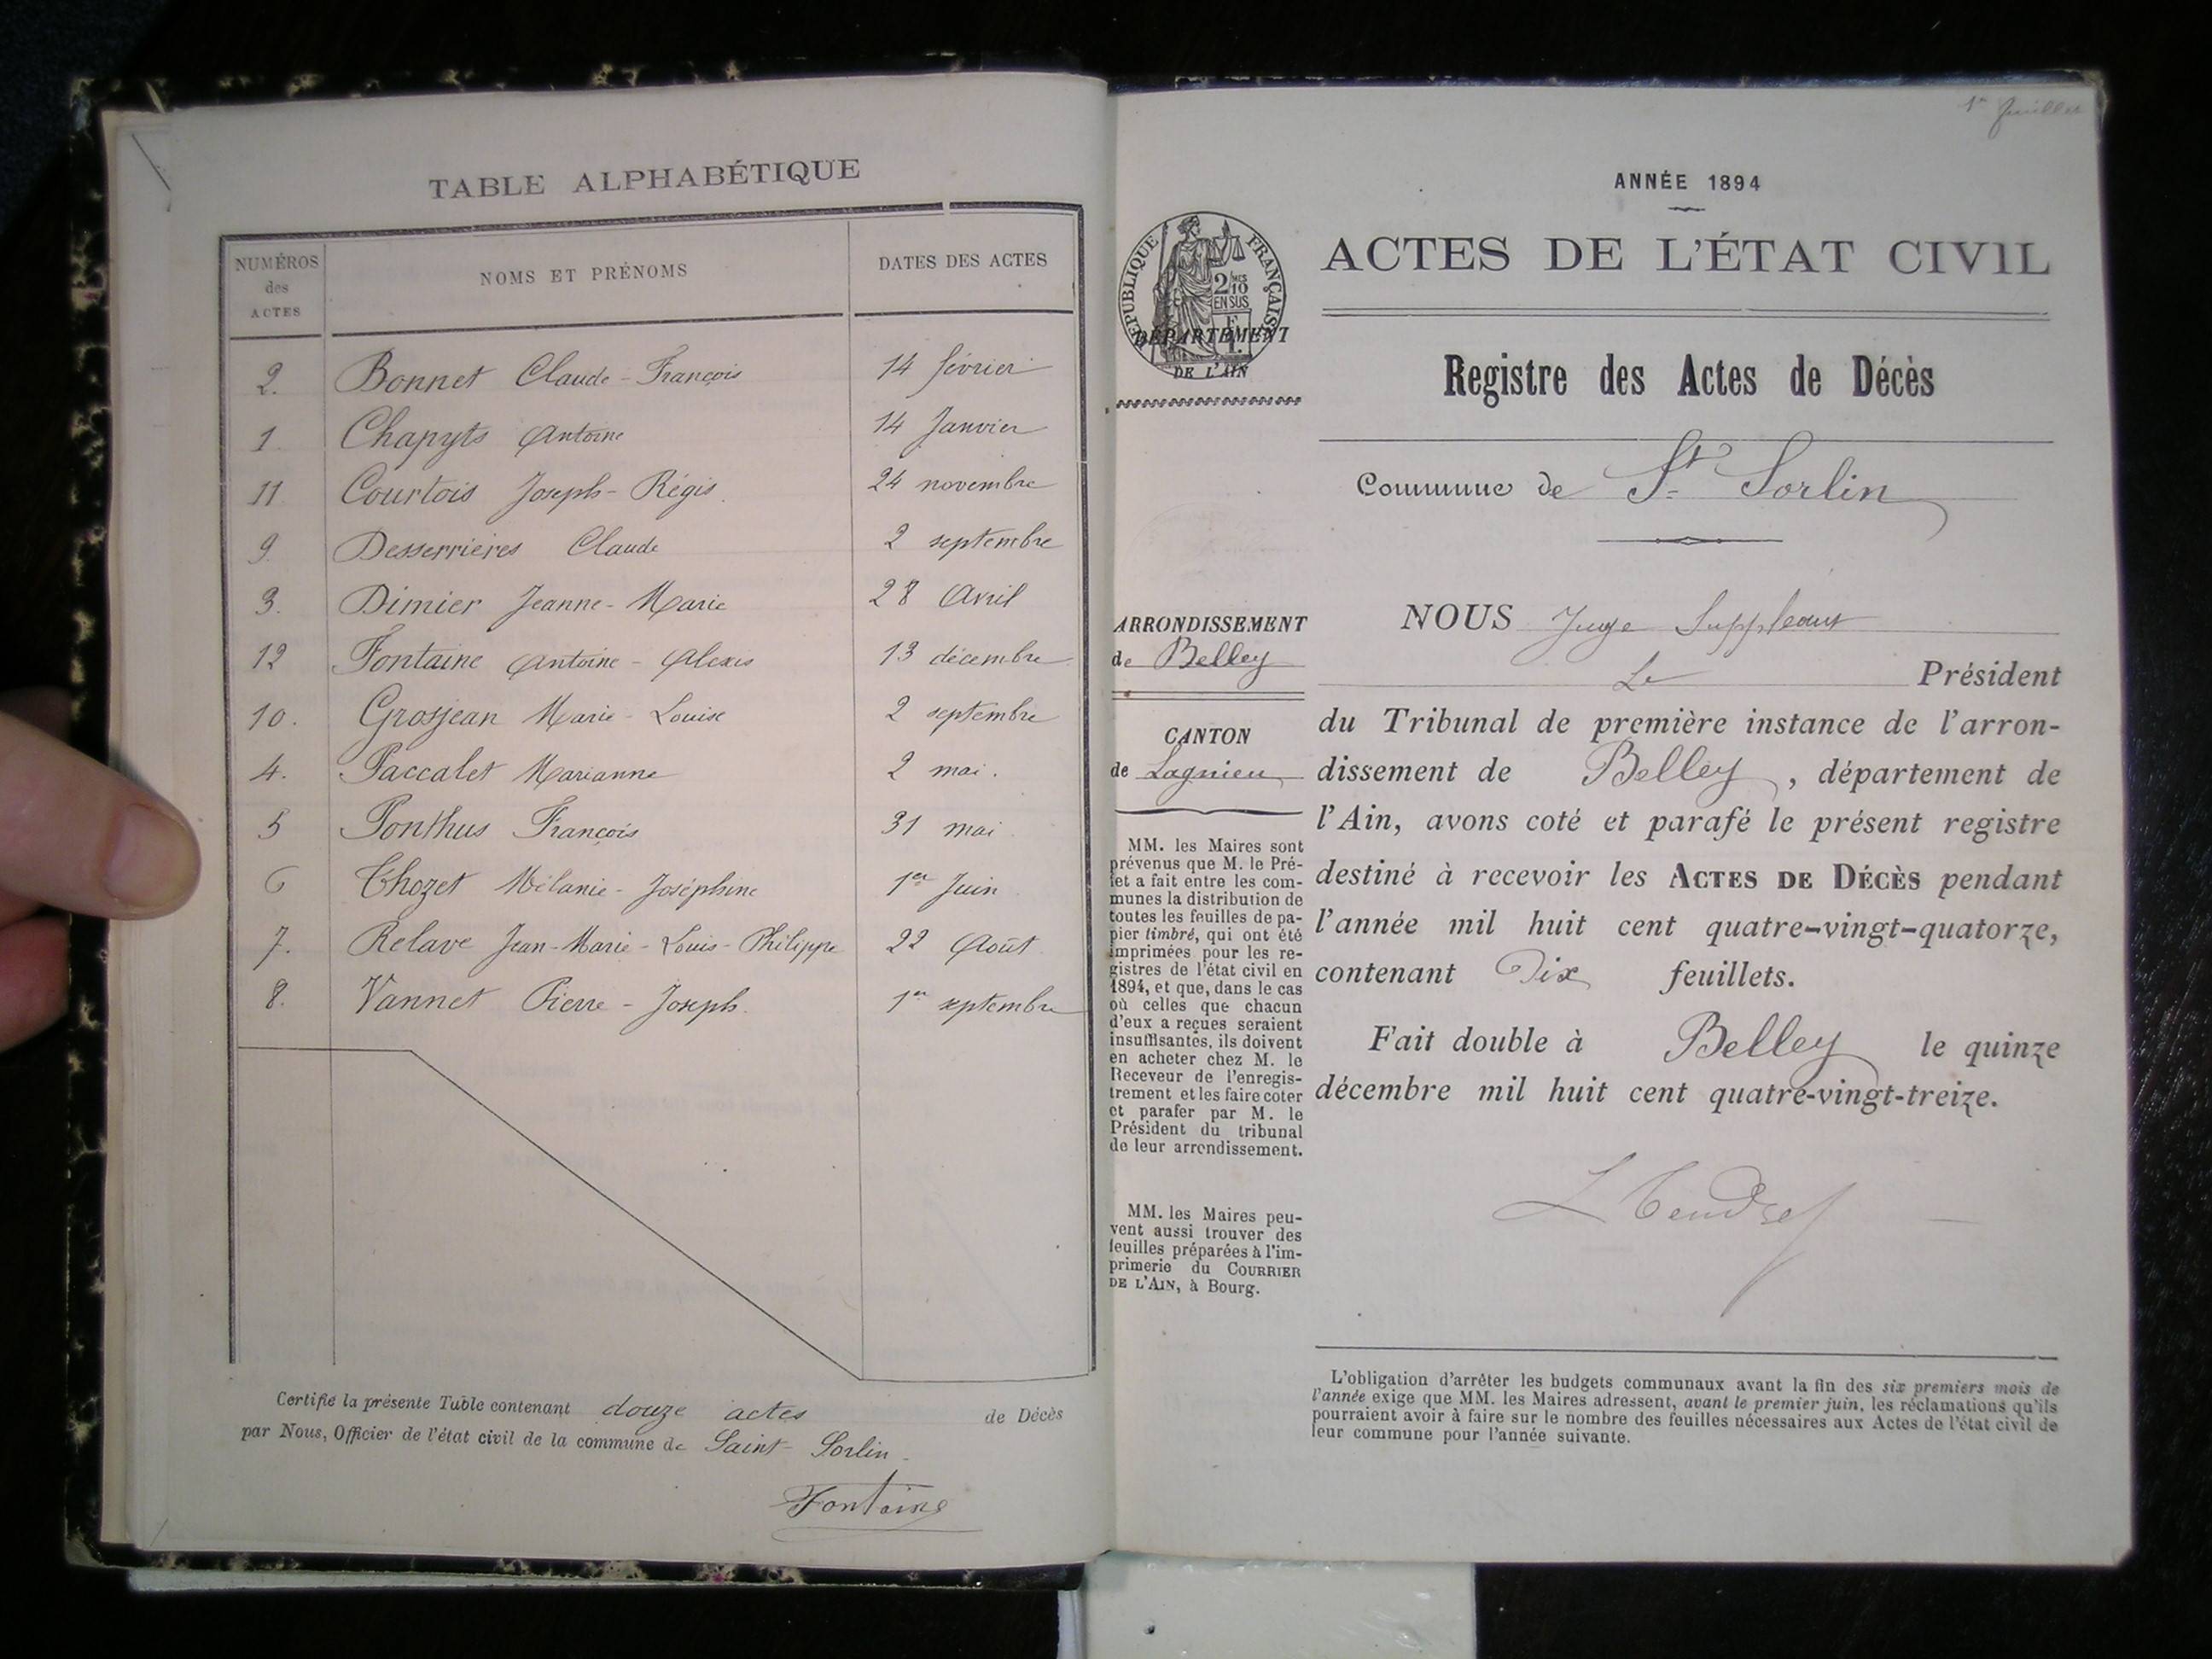 TABLE ALPHABÉTIQUE
NUMÉROS des ACTES
NOMS ET PRÉNOMS
DATES DES ACTES
2. Bonnet Claude-François 14 février
1 Chapyts Antoine 14 Janvier
11 Courtois Joseph-Régis. 24 novembre
9. Desserrières Claude 2 septembre
3. Dimier Jeanne-Marie 28 Avril
12 Fontaine Antoine-Alexis 13 décembre
10. Grosjean Marie-Louise 2 septembre
4. Paccalet Marianne 2 mai.
5 Ponthus François 31 mai
6 Thozet Mélanie-Joséphine 1er Juin
7. Relave Jean-Marie-Louis-Philippe 22 Août
8. Vannet Pierre-Joseph. 1er septembre
Certifié la présente Table contenant douze actes de Décès
par Nous, Officier de l'état civil de la commune de Saint-Sorlin.
Fontaine
1er feuillet
ANNÉE 1894
ACTES DE L'ÉTAT CIVIL
RÉPUBLIQUE FRANÇAISE
2/10 EN SUS
DÉPARTEMENT
DE L'AIN
Registre des Actes de Décès
Commune de St Sorlin
ARRONDISSEMENT
de Belley
CANTON
de Lagnieu
MM. les Maires sont
prévenus que M. le Pré-
fet a fait entre les com-
munes la distribution de
toutes les feuilles de pa-
pier timbré, qui ont été
imprimées pour les re-
gistres de l'état civil en
1894, et que, dans le cas
où celles que chacun
d'eux a reçues seraient
insuffisantes, ils doivent
en acheter chez M. le
Receveur de l'enregis-
trement et les faire coter
et parafer par M. le
Président du tribunal
de leur arrondissement.
MM. les Maires peu-
vent aussi trouver des
feuilles préparées à l'im-
primerie du COURRIER
DE L'AIN, à Bourg.
NOUS Juge Suppléant
Le Président
du Tribunal de première instance de l'arron-
dissement de Belley, département de
l'Ain, avons coté et parafé le présent registre
destiné à recevoir les ACTES DE DÉCÈS pendant
l'année mil huit cent quatre-vingt-quatorze,
contenant Dix feuillets.
Fait double à Belley le quinze
décembre mil huit cent quatre-vingt-treize.
L'obligation d'arrêter les budgets communaux avant la fin des six premiers mois de
l'année exige que MM. les Maires adressent, avant le premier juin, les réclamations qu'ils
pourraient avoir à faire sur le nombre des feuilles nécessaires aux Actes de l'état civil de
leur commune pour l'année suivante.